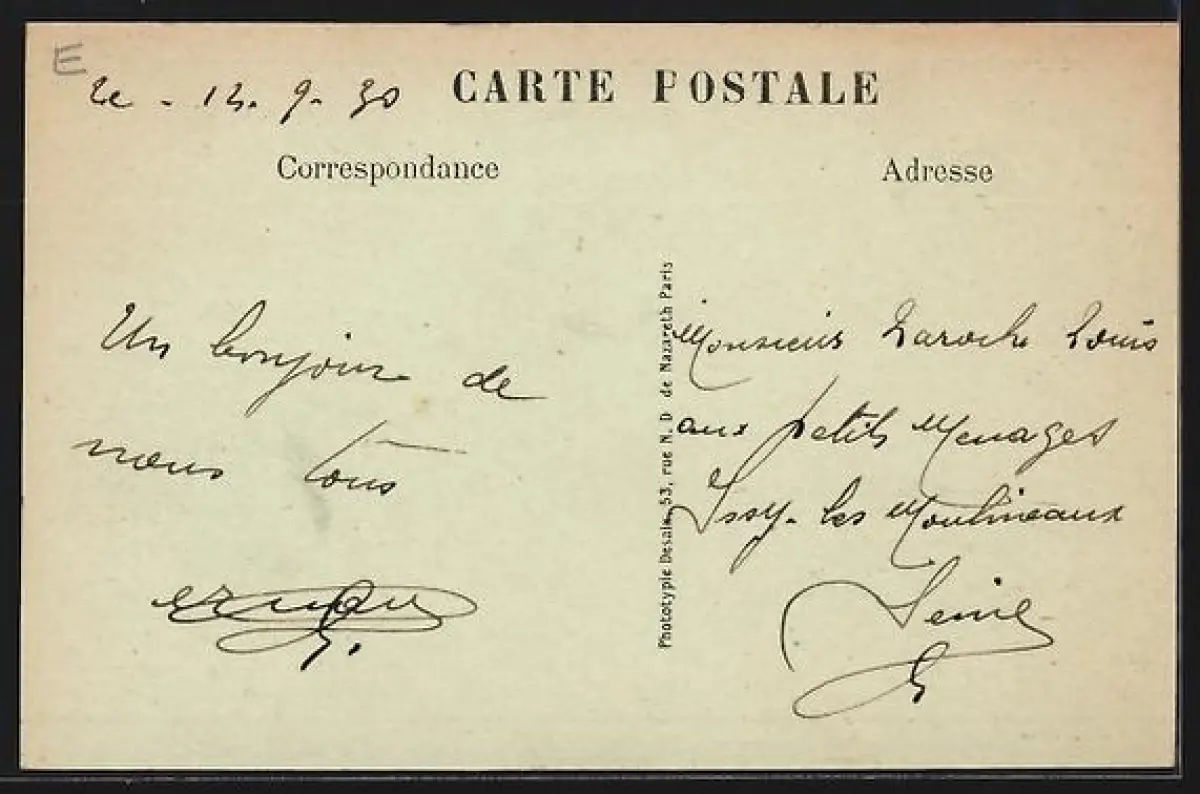 E
Le - 12. 9. 30
CARTE POSTALE
Correspondance
Adresse
Un bonjour de
nous tous
Phototypie Desaix, 53, rue N. D de Nazareth Paris
Monsieur Laroche Louis
aux petits Menages
Issy-les Moulineaux
Seine